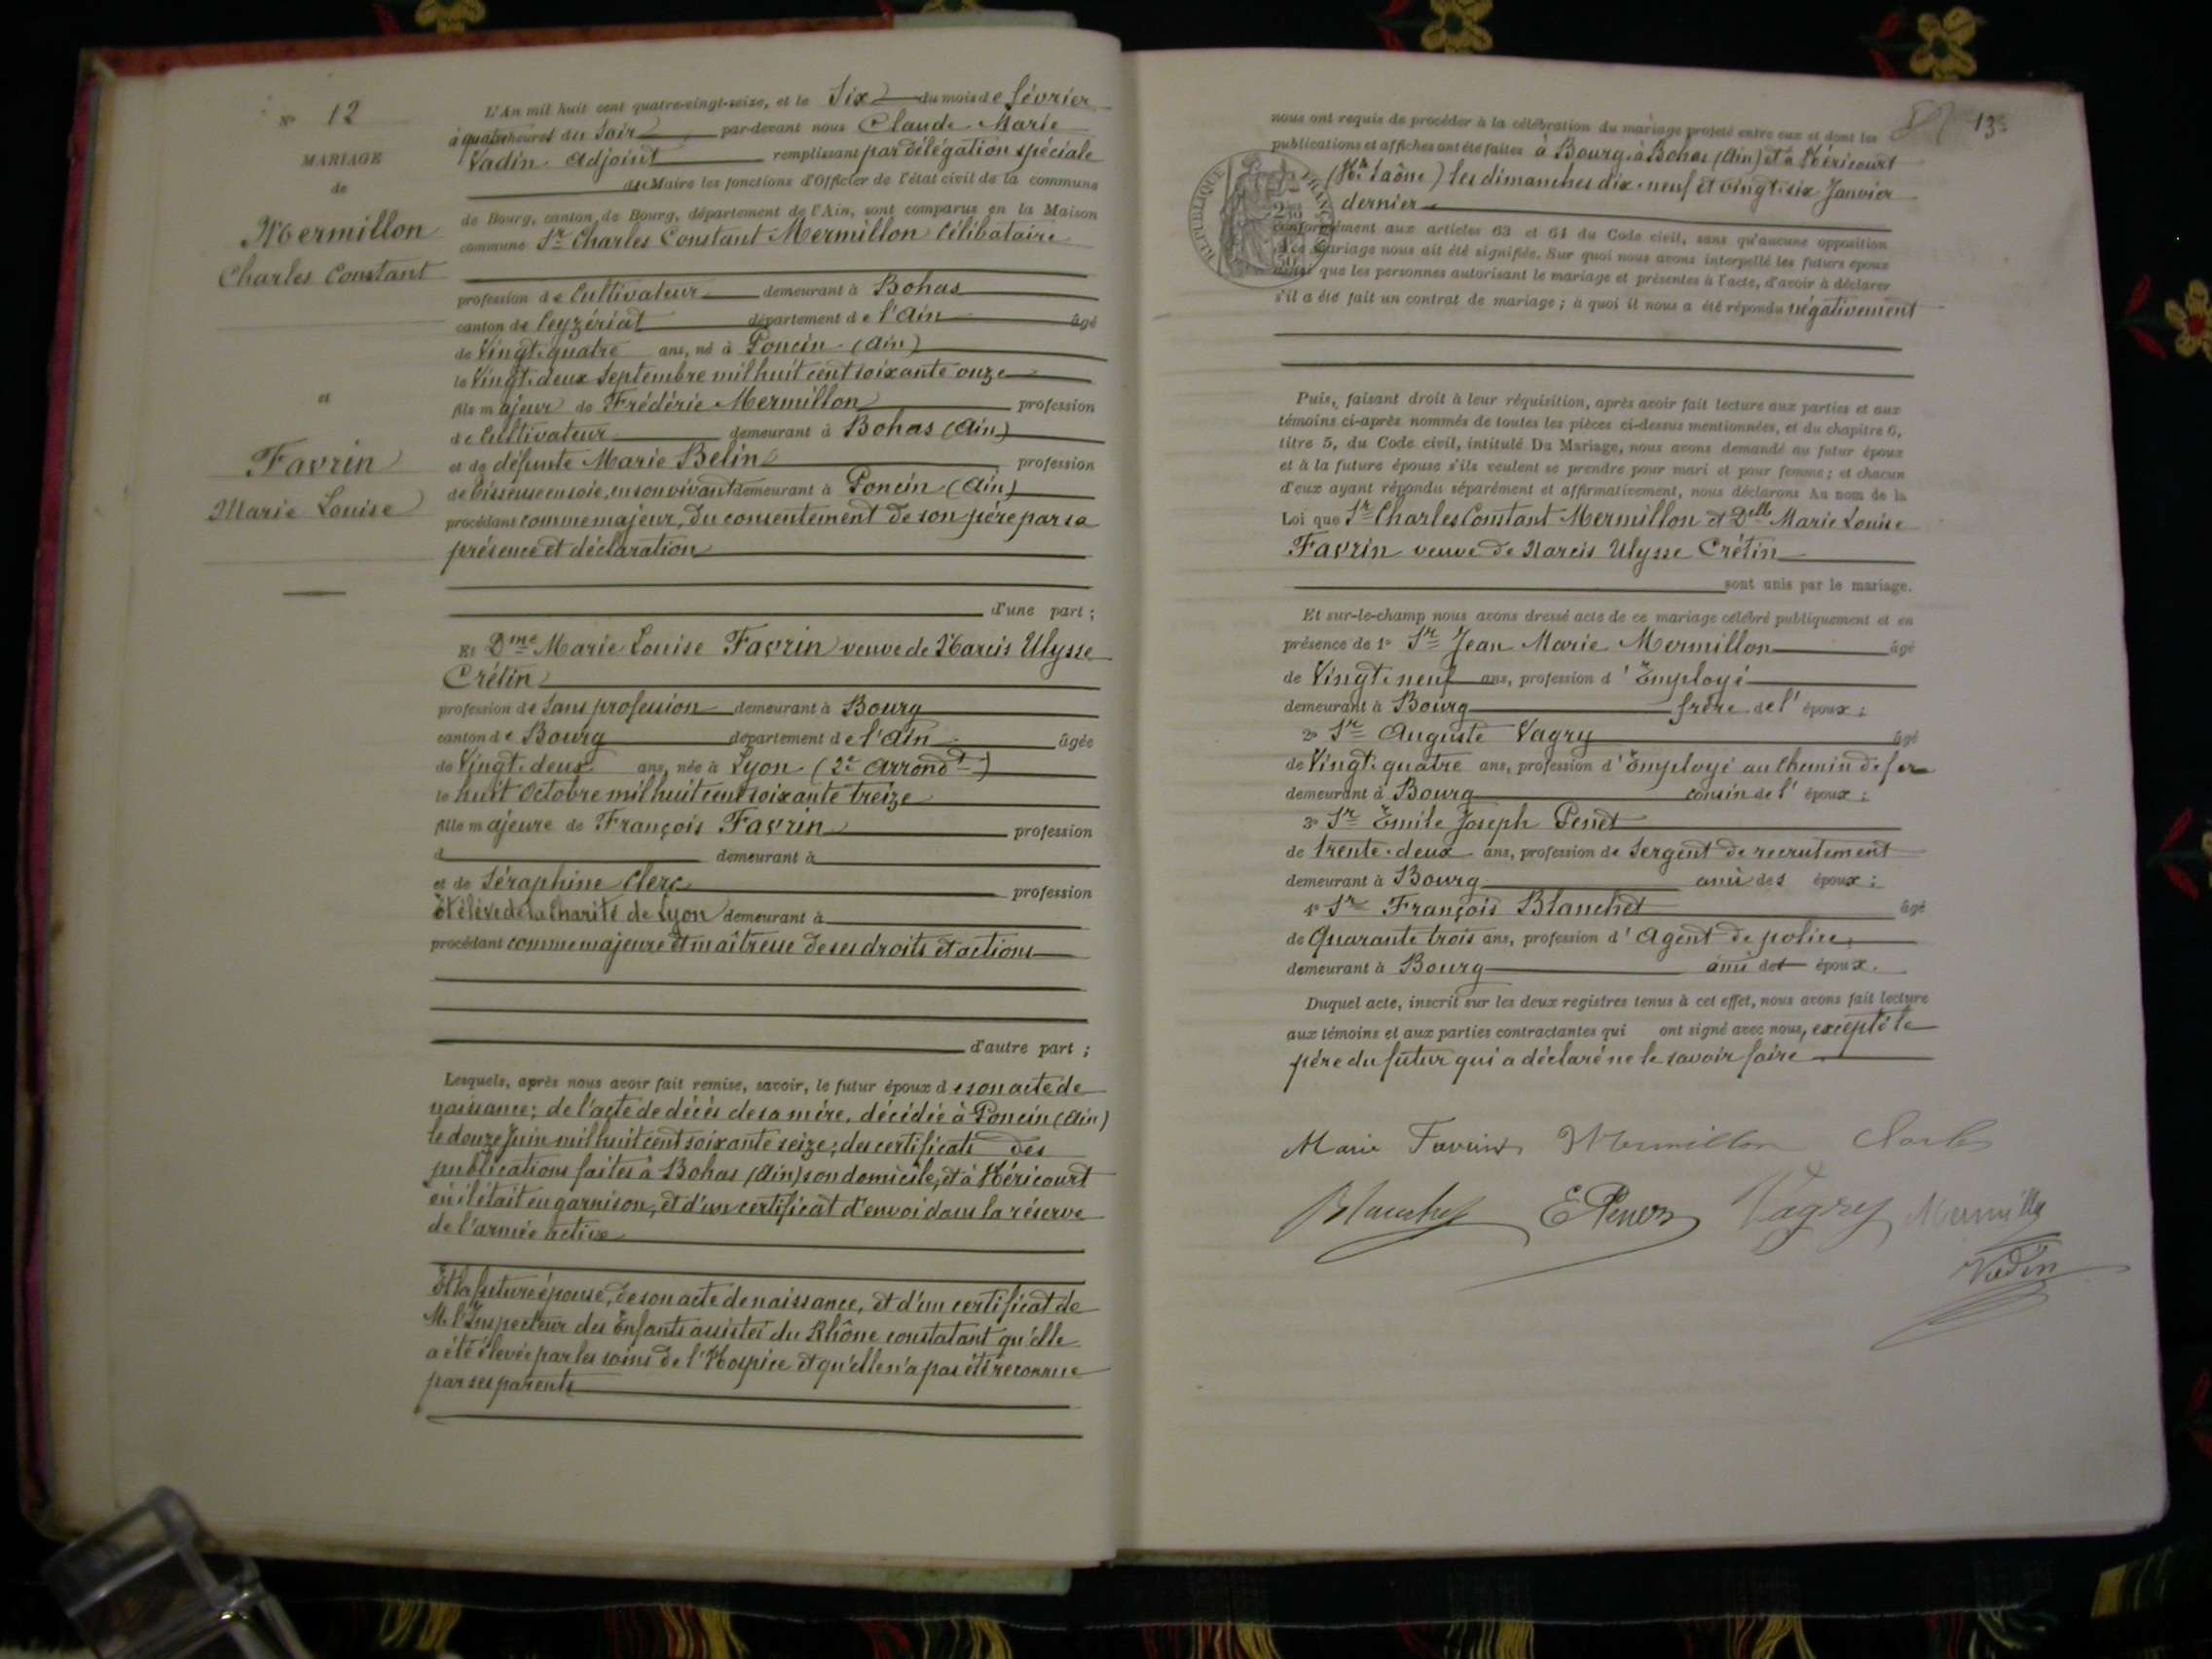 N° 12
MARIAGE
de
Mermillon
Charles Constant
et
Favrin
Marie Louise
L'An mil huit cent quatre-vingt-seize, et le Six du mois de février
à quatre heures du Soir par-devant nous Claude Marie
Vadin Adjoint remplissant par délégation spéciale
du Maire les fonctions d'Officier de l'état civil de la commune
de Bourg, canton de Bourg, département de l'Ain, sont comparus en la Maison
commune Sr Charles Constant Mermillon Célibataire
profession de Cultivateur demeurant à Bohas
canton de Ceyzériat département de l'Ain âgé
de Vingt-quatre ans, né à Poncin (Ain)
le Vingt-deux Septembre mil huit cent soixante onze
fils majeur de Frédéric Mermillon profession
de Cultivateur demeurant à Bohas (Ain)
et de défunte Marie Belin profession
de tisseuse en soie, en son vivant demeurant à Poncin (Ain)
procédant comme majeur, du consentement de son père par sa
présence et déclaration
d'une part ;
Et Dme Marie Louise Favrin veuve de Narcis Ulysse
Crétin
profession de Sans profession demeurant à Bourg
canton de Bourg département de l'Ain âgée
de Vingt-deux ans, née à Lyon (2e Arrondt)
le huit Octobre mil huit cent soixante treize
fille majeure de François Favrin profession
d demeurant à
et de Séraphine Clerc profession
Et élève de la Charité de Lyon demeurant à
procédant comme majeure et maîtresse de ses droits et actions
d'autre part ;
Lesquels, après nous avoir fait remise, savoir, le futur époux de son acte de
naissance ; de l'acte de décès de sa mère, décédée à Poncin (Ain)
le douze Juin mil huit cent soixante seize ; des certificats des
publications faites à Bohas (Ain) son domicile, et à Héricourt
où il était en garnison, et d'un certificat d'envoi dans la réserve
de l'armée active
Et la future épouse, de son acte de naissance, et d'un certificat de
M. l'Inspecteur des Enfants assistés du Rhône constatant qu'elle
a été élevée par les soins de l'Hospice et qu'elle n'a pas été reconnue
par ses parents
13
nous ont requis de procéder à la célébration du mariage projeté entre eux et dont les
publications et affiches ont été faites à Bourg, à Bohas (Ain) et à Héricourt
(Hte Saône) les dimanches dix-neuf et vingt-six Janvier
dernier
RÉPUBLIQUE FRANÇAISE
conformément aux articles 63 et 64 du Code civil, sans qu'aucune opposition
à ce mariage nous ait été signifiée. Sur quoi nous avons interpellé les futurs époux
ainsi que les personnes autorisant le mariage et présentes à l'acte, d'avoir à déclarer
s'il a été fait un contrat de mariage ; à quoi il nous a été répondu négativement
Puis, faisant droit à leur réquisition, après avoir fait lecture aux parties et aux
témoins ci-après nommés de toutes les pièces ci-dessus mentionnées, et du chapitre 6,
titre 5, du Code civil, intitulé Du Mariage, nous avons demandé au futur époux
et à la future épouse s'ils veulent se prendre pour mari et pour femme ; et chacun
d'eux ayant répondu séparément et affirmativement, nous déclarons Au nom de la
Loi que Sr Charles Constant Mermillon et Delle Marie Louise
Favrin veuve de Narcis Ulysse Crétin
sont unis par le mariage.
Et sur-le-champ nous avons dressé acte de ce mariage célébré publiquement et en
présence de 1° Sr Jean Marie Mermillon âgé
de Vingt-neuf ans, profession d'Employé
demeurant à Bourg frère de l'époux ;
2° Sr Auguste Vagry âgé
de Vingt-quatre ans, profession d'Employé au chemin de fer
demeurant à Bourg cousin de l'époux ;
3° Sr Émile Joseph Penet
de trente-deux ans, profession de Sergent de recrutement
demeurant à Bourg ami des époux ;
4° Sr François Blanchet âgé
de Quarante trois ans, profession d'Agent de police
demeurant à Bourg ami des époux.
Duquel acte, inscrit sur les deux registres tenus à cet effet, nous avons fait lecture
aux témoins et aux parties contractantes qui ont signé avec nous, excepté le
père du futur qui a déclaré ne le savoir faire
Marie Favrin Mermillon Charles
Blanchet E Penet Vagry Mermillon
Vadin